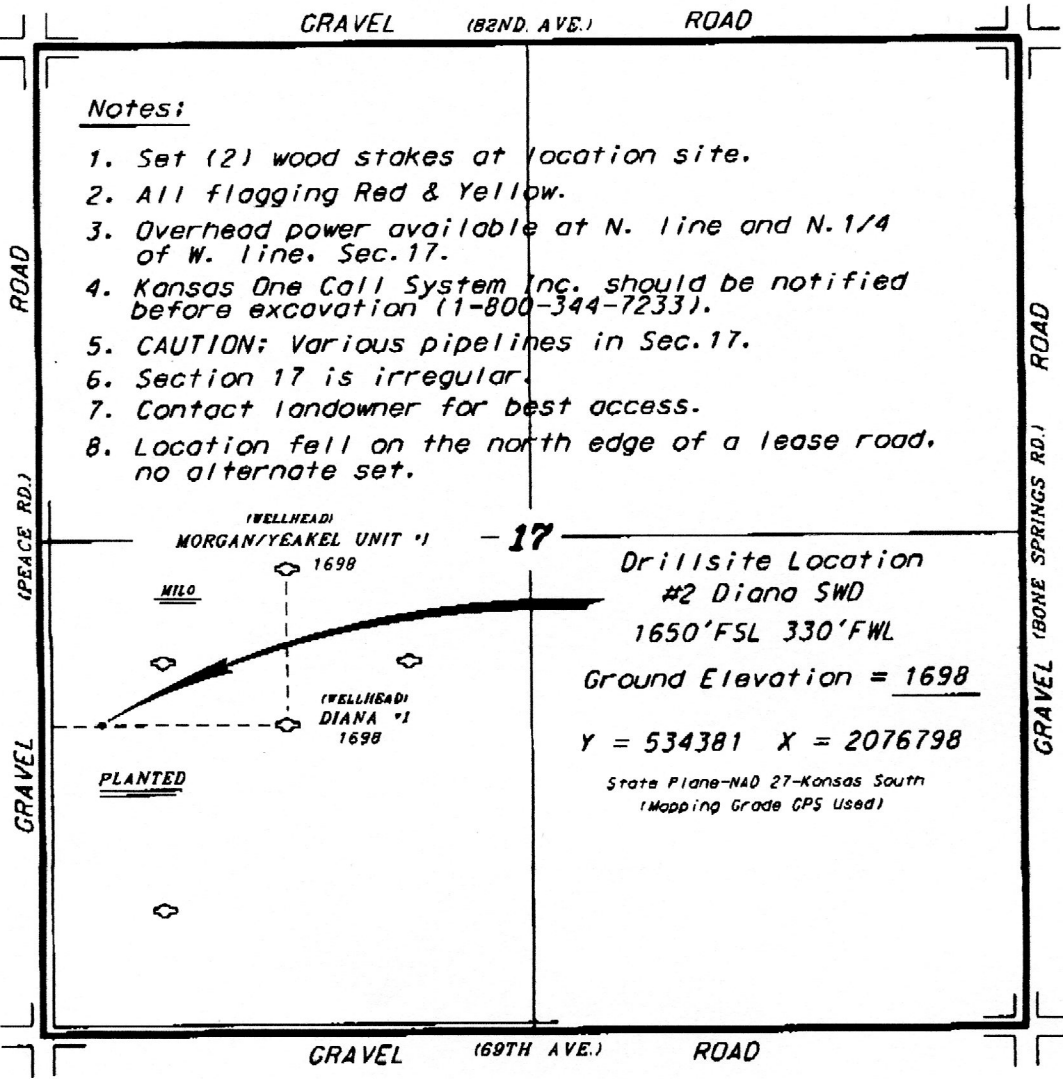 GRAVEL (82ND. AVE.) ROAD
Notes:
1. Set (2) wood stakes at location site.
2. All flagging Red & Yellow.
3. Overhead power available at N. line and N.1/4
of W. line, Sec.17.
4. Kansas One Call System Inc. should be notified
before excavation (1-800-344-7233).
5. CAUTION: Various pipelines in Sec.17.
6. Section 17 is irregular.
7. Contact landowner for best access.
8. Location fell on the north edge of a lease road,
no alternate set.
GRAVEL (PEACE RD.) ROAD
GRAVEL (BONE SPRINGS RD.) ROAD
(WELLHEAD)
MORGAN/YEAKEL UNIT #1
1698
MILO
17
Drillsite Location
#2 Diana SWD
1650'FSL 330'FWL
Ground Elevation = 1698
Y = 534381 X = 2076798
State Plane-NAD 27-Kansas South
(Mapping Grade GPS Used)
(WELLHEAD)
DIANA #1
1698
PLANTED
GRAVEL (69TH AVE.) ROAD